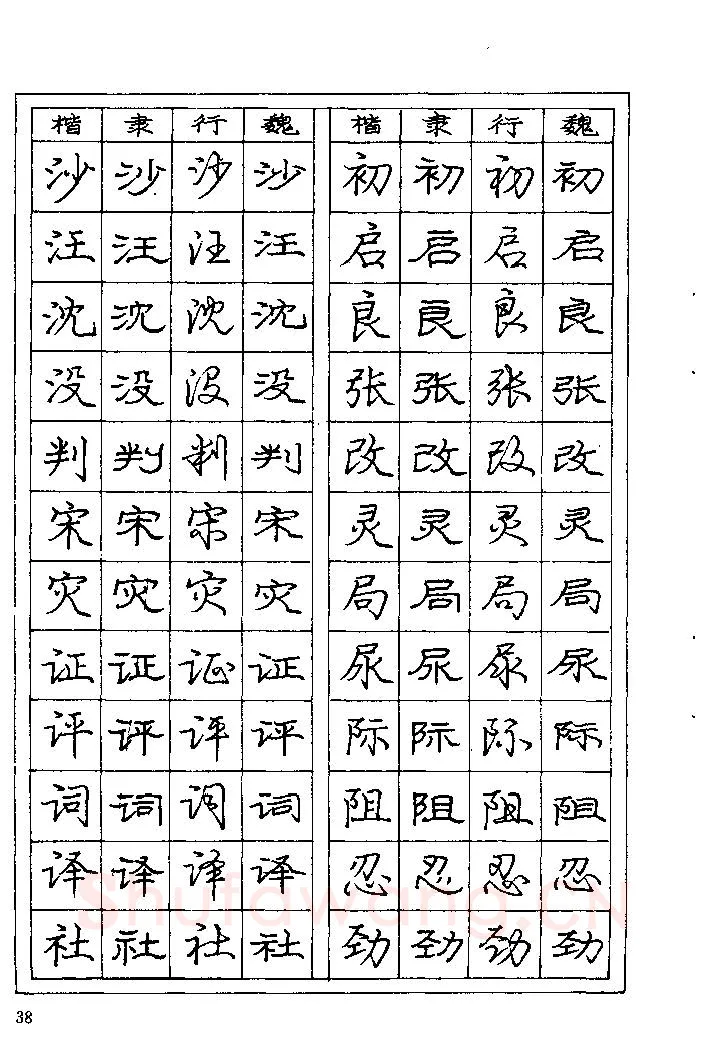 楷 隶 行 魏 楷 隶 行 魏
沙 沙 沙 沙 初 初 初 初
汪 汪 汪 汪 启 启 启 启
沈 沈 沈 沈 良 良 良 良
没 没 没 没 张 张 张 张
判 判 判 判 改 改 改 改
宋 宋 宋 宋 灵 灵 灵 灵
灾 灾 灾 灾 局 局 局 局
证 证 证 证 尿 尿 尿 尿
评 评 评 评 际 际 际 际
词 词 词 词 阻 阻 阻 阻
译 译 译 译 忍 忍 忍 忍
Shufawang.CN
社 社 社 社 劲 劲 劲 劲
38